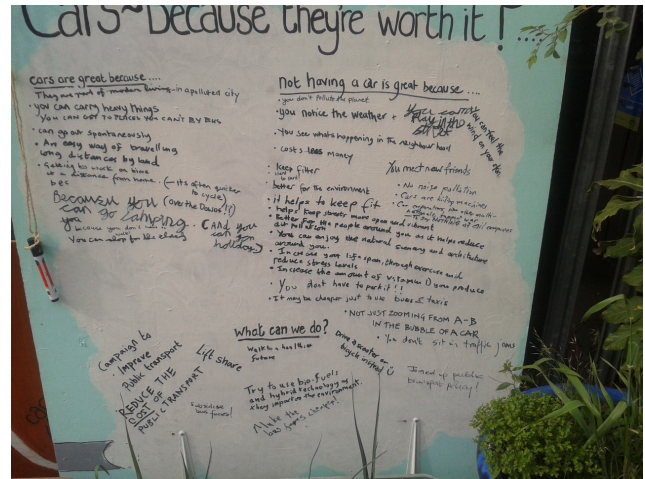 Cars ~ Because they're worth it !....
cars are great because....
They are part of modern living - in a polluted city
• you can carry heavy things
YOU CAN GET TO PLACES YOU CAN'T BY BIKE
• can go out spontaneously
• An easy way of travelling
long distances by land
• Getting to work on time
at a distance from home. (— its often quicker
to cycle)
Because you (over the Downs !!)
can go camping. (AND you
You can go
because you don't
holiday.)
You can shop for the elderly
not having a car is great because....
• you don't pollute the planet
• you notice the weather +
You can feel the
wind on your
• You see what's happening in the neighbourhood
• Costs less money
keep fitter
You meet new friends
better for the environment
• No noise pollution
• Cars are killing machines
• it helps to keep fit
• helps keep streets more open and vibrant
• Better for the people around you as it helps reduce
air pollution
• You can enjoy the natural scenery and architecture
around you.
• Increase your lifespan, through exercise and
reduce stress levels
• Increase the amount of vitamin D you produce
• You don't have to park it !!
• It may be cheaper just to use buses & taxis
• NOT JUST ZOOMING FROM A-B
IN THE BUBBLE OF A CAR
• You don't sit in traffic jams
what can we do?
Campaign to
improve
Public transport
Lift share
Walk to a healthier
future
REDUCE THE
COST OF
PUBLIC TRANSPORT
Subsidise
bus fares!
Try to use bio-fuels
and hybrid technology as
they improve the environment.
Make the
bus fares cheaper!
Drive a scooter or
bicycle instead
Joined up public
transport policy!